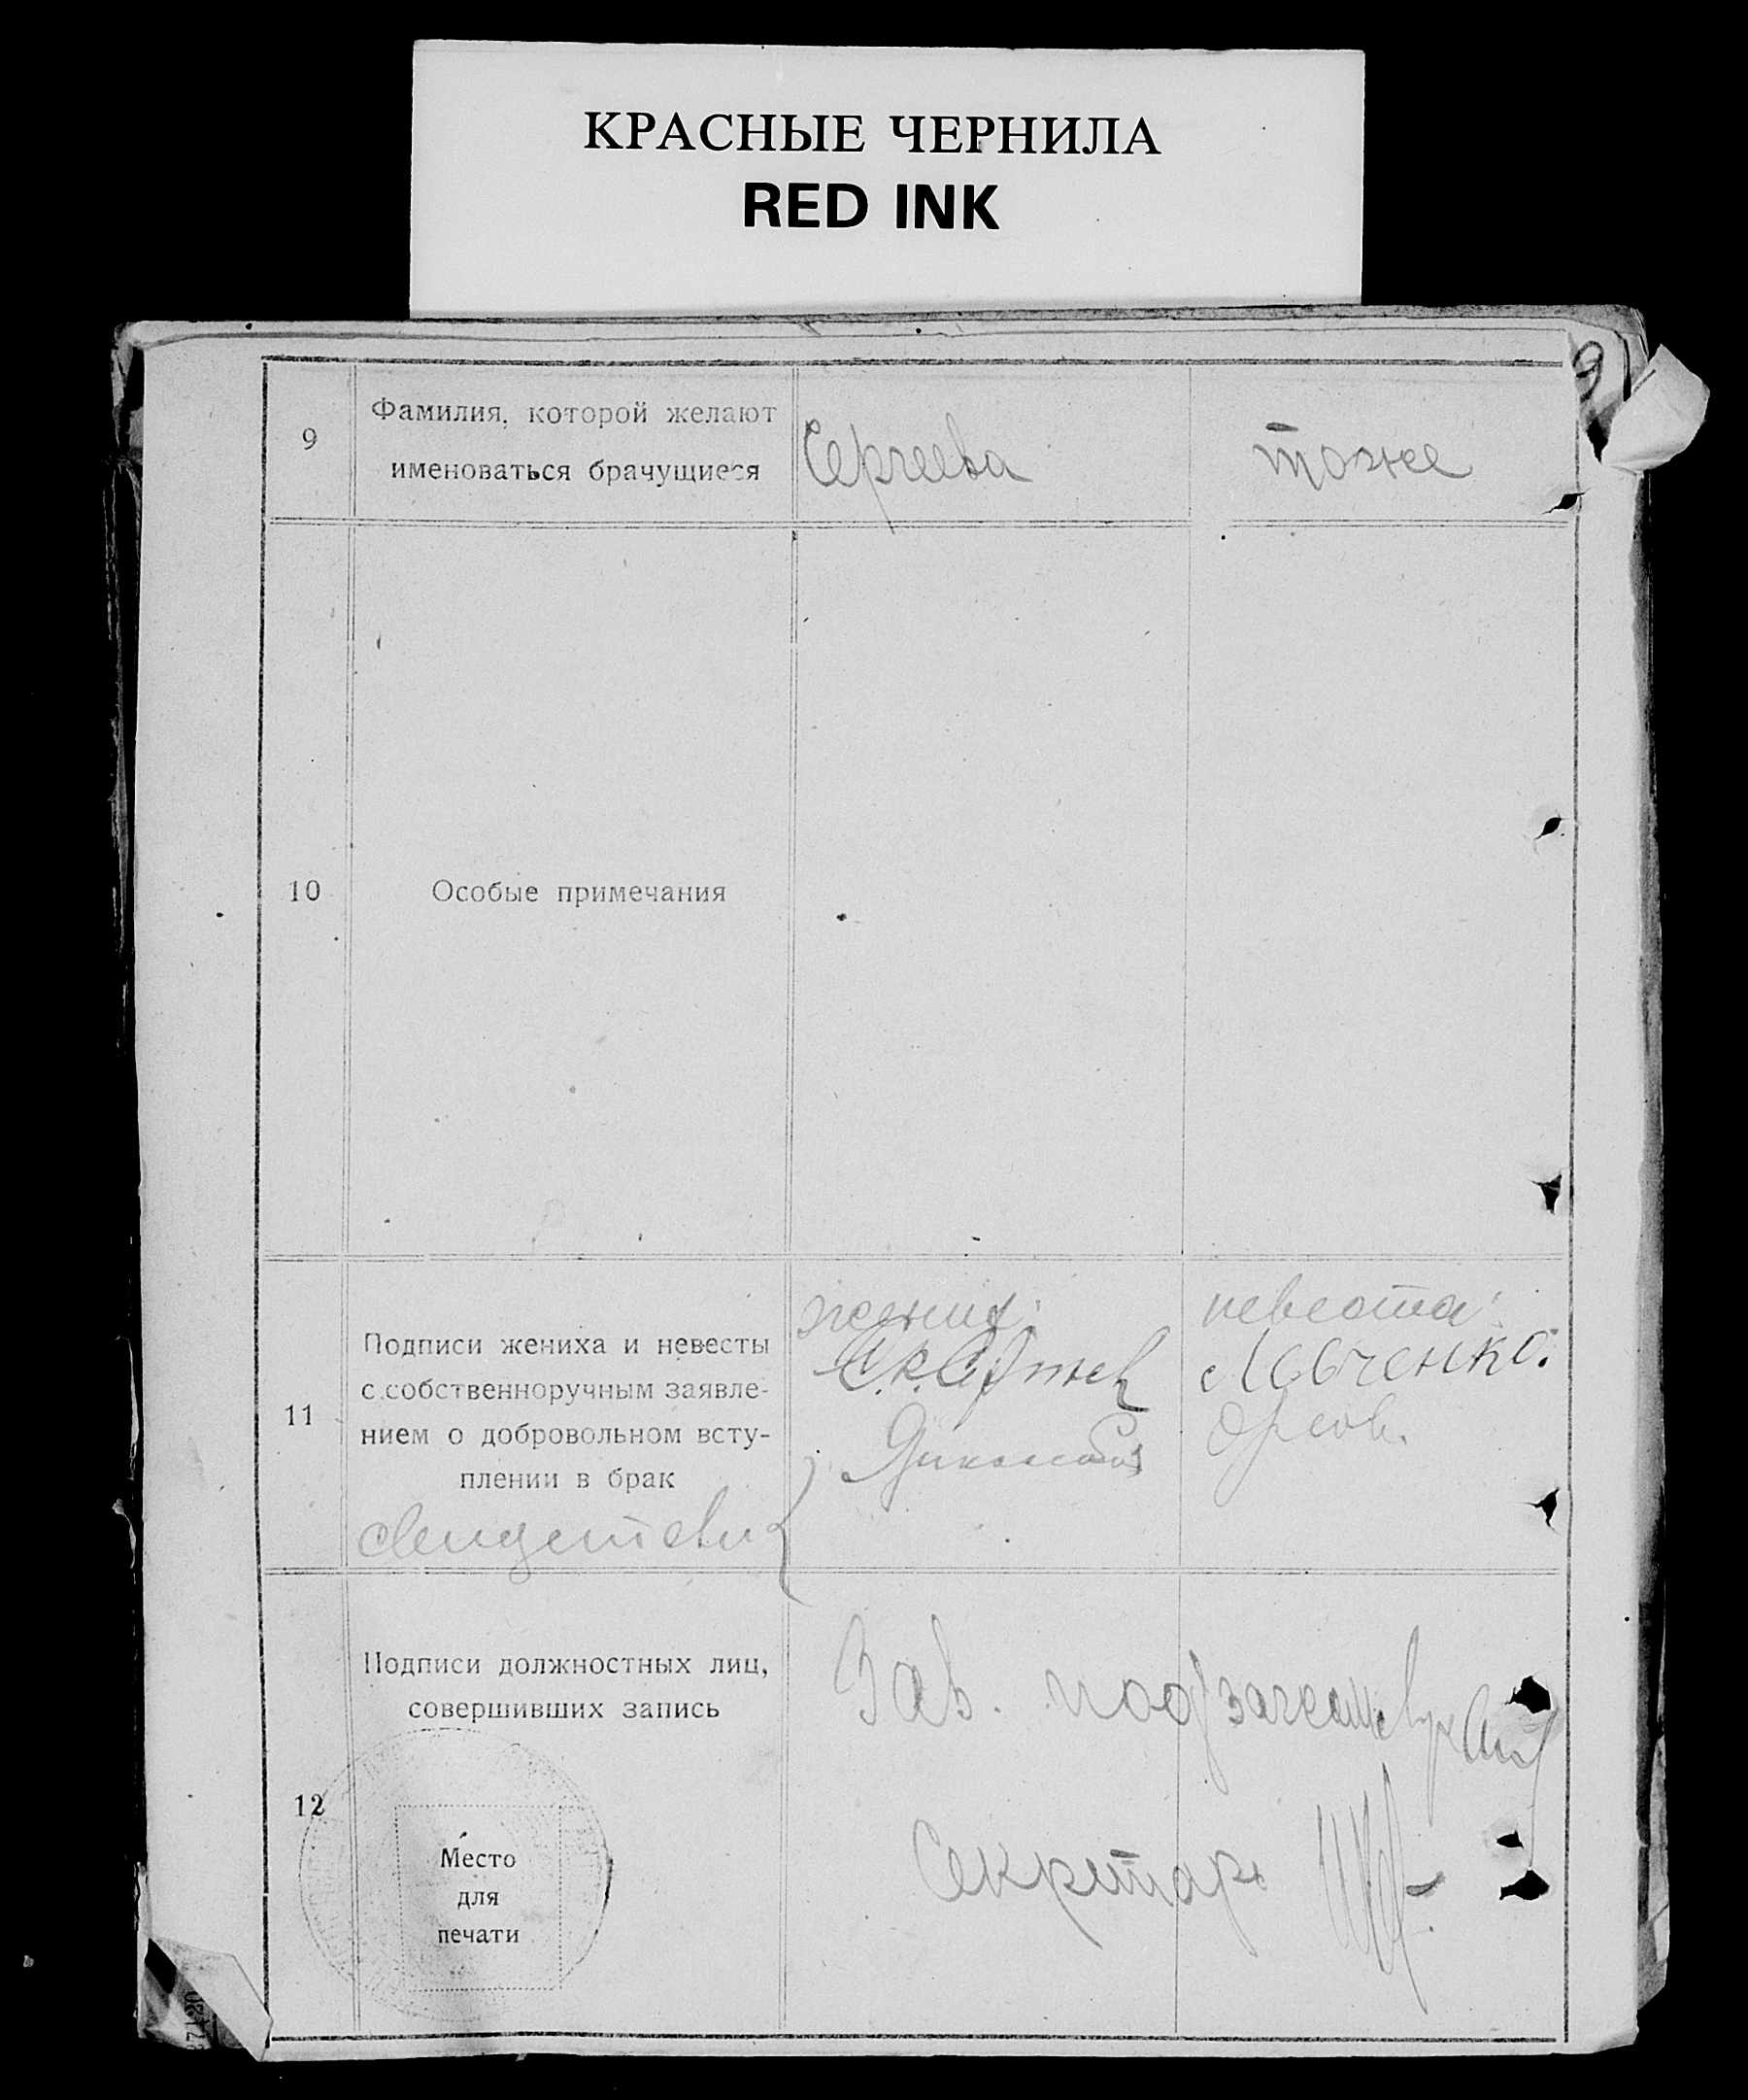 КРАСНЫЕ ЧЕРНИЛА
RED INK
91
9
Фамилия, которой желают
именоваться брачущиеся
Сергеева
тоже
10
Особые примечания
11
Подписи жениха и невесты
с собственноручным заявле-
нием о добровольном всту-
плении в брак
свидетели
жених:
невеста:
Левченко.
12
Подписи должностных лиц,
совершивших запись
Зав. под
Секретарь
Место
для
печати